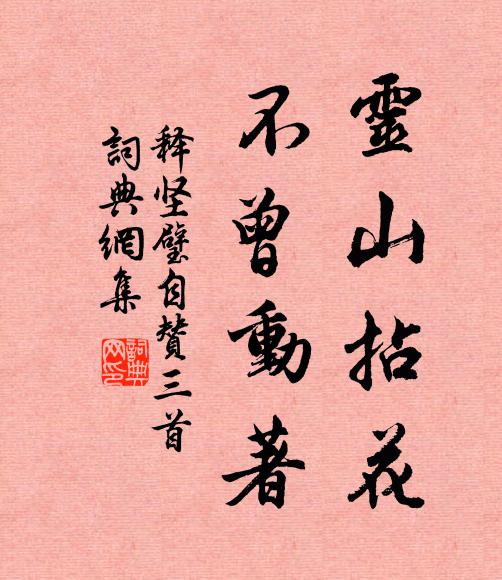 靈山拈花
不曾動著
释坚璧自赞三首
詞典網集
詞典
网印